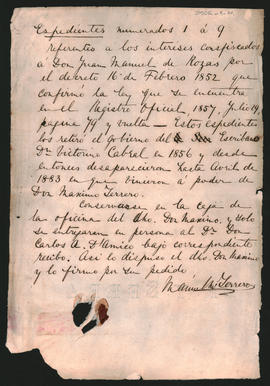 Expedientes numerados 1 á 9
referentes a los intereses confiscados
á Don Juan Manuel de Rozas por
el decreto 16 de Febrero 1852 que
confirmó la ley que se encuentra
en el Registro Oficial 1857, Julio 19,
pagina 79 y vuelta — Estos espedientes
los retiró el Gobierno del Escribano
Dn Victorino Cabral en 1856 y desde
entonces desaparecieron hasta Abril de
1883 en que vinieron á poder de
Don Maximo Terrero.
Conservarse en la caja de
la oficina del dho. Don Maximo, y solo
se entregaran en persona al Dr. Don
Carlos A. D'Amico bajo correspondiente
recibo. Asi lo dispuso el dho. Don Maximo
y lo firmo por su pedido.
Terrero